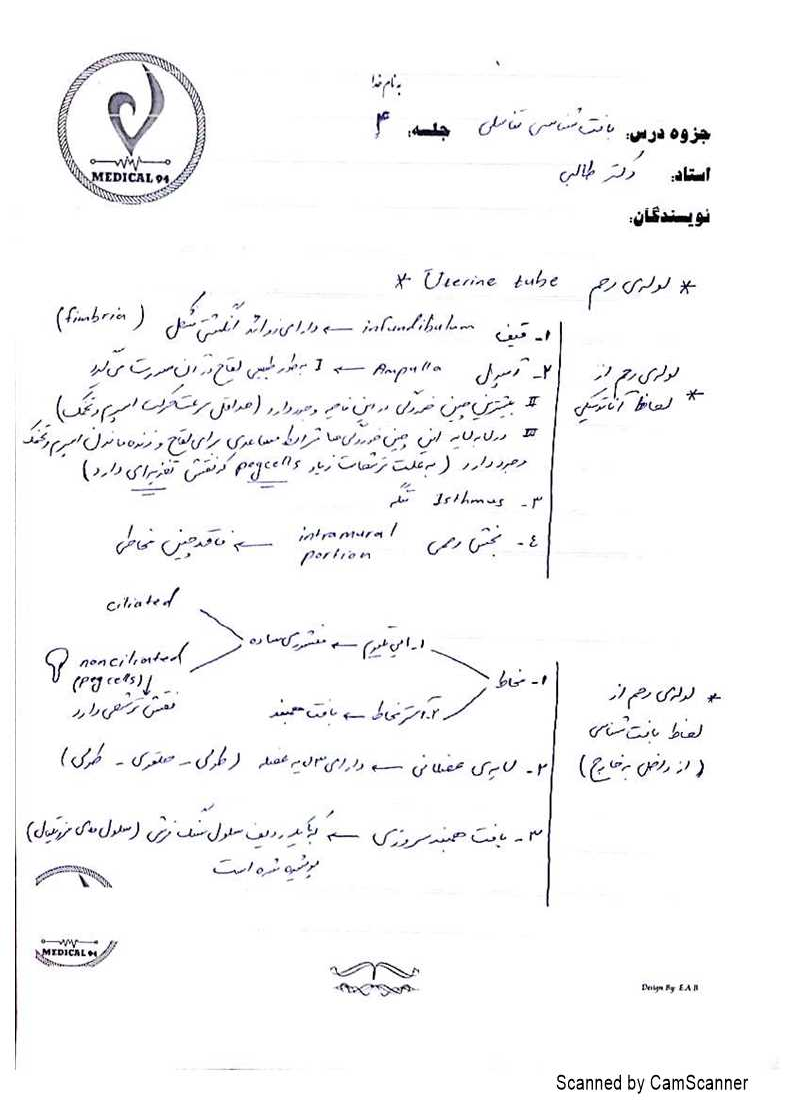 به نام خدا
جزوه درس: بافت شناسی تناسلی جلسه: ۴
استاد: دکتر طالبی
نویسندگان:
MEDICAL 94
* لوله‌ی رحم Uterine tube *
* لوله‌ی رحم از لحاظ آناتومیکی
۱- قیف infundibulum ← دارای زوائد انگشتی شکل (fimbria)
۲- آمپول Ampulla ← I بطور طبیعی لقاح در آن صورت می‌گیرد
II بیشترین چین خوردگی در این ناحیه وجود دارد (حداقل سرعت حرکت اسپرم و تخمک)
III در لابه‌لای این چین خوردگی‌ها شرایط مساعدی برای لقاح و زنده ماندن اسپرم و تخمک
وجود دارد (به علت ترشحات زیاد pegcells که نقش تغذیه‌ای دارد)
۳- Isthmus تنگه
۴- بخش رحمی intramural portion ← فاقد چین مخاطی
* لوله‌ی رحم از
لحاظ بافت شناسی
(از داخل به خارج)
۱- مخاط
۱- اپی تلیوم ← منشوری ساده
ciliated
nonciliated
(pegcells)
نقش ترشحی دارد
۲- آستر مخاط ← بافت همبند
۲- لایه‌ی عضلانی ← دارای ۳ لایه عضله (طولی - حلقوی - طولی)
۳- بافت همبند سروزی ← که با یک ردیف سلول سنگ فرشی (سلول های مزوتلیال)
پوشیده شده است
MEDICAL 94
Design By: E.A.B
Scanned by CamScanner